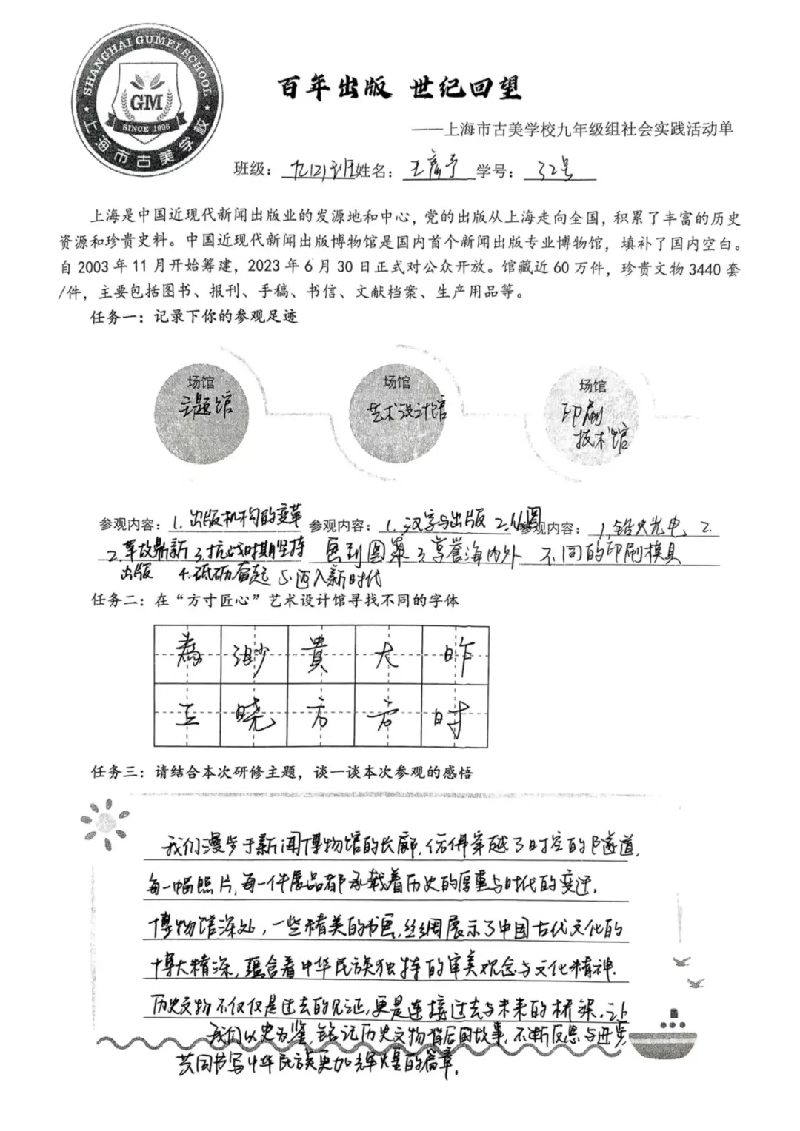 SHANGHAI GUMEI SCHOOL
GM
SINCE 1996
上海市古美学校
百年出版 世纪回望
——上海市古美学校九年级组社会实践活动单
班级：九(2)班姓名：王 学号：32号
上海是中国近现代新闻出版业的发源地和中心，党的出版从上海走向全国，积累了丰富的历史
资源和珍贵史料。中国近现代新闻出版博物馆是国内首个新闻出版专业博物馆，填补了国内空白。
自 2003 年 11 月开始筹建，2023 年 6 月 30 日正式对公众开放。馆藏近 60 万件，珍贵文物 3440 套
/件，主要包括图书、报刊、手稿、书信、文献档案、生产用品等。
任务一：记录下你的参观足迹
场馆 场馆 场馆
主题馆 艺术设计馆 印刷
技术馆
参观内容：1. 出版机构的变革 参观内容：1.汉字与出版 2.从图 参观内容：1.铅火光电 2.
2.革故鼎新 3.抗战时期坚持 画到图案 3.享誉海内外 不同的印刷模具
出版 4.砥砺奋起 5.迈入新时代
任务二：在“方寸匠心”艺术设计馆寻找不同的字体
为 渺 貴 大 昨
立 晓 方 时
任务三：请结合本次研修主题，谈一谈本次参观的感悟
我们漫步于新闻博物馆的长廊，仿佛穿越了时空的隧道，
每一幅照片，每一件展品都承载着历史的厚重与时代的变迁。
博物馆深处，一些精美的书画，丝绸展示了中国古代文化的
博大精深，蕴含着中华民族独特的审美观念与文化精神。
历史文物不仅仅是过去的见证，更是连接过去与未来的桥梁。让
我们以史为鉴，铭记历史文物背后的故事，不断反思与进步，
共同书写中华民族更加辉煌的篇章。